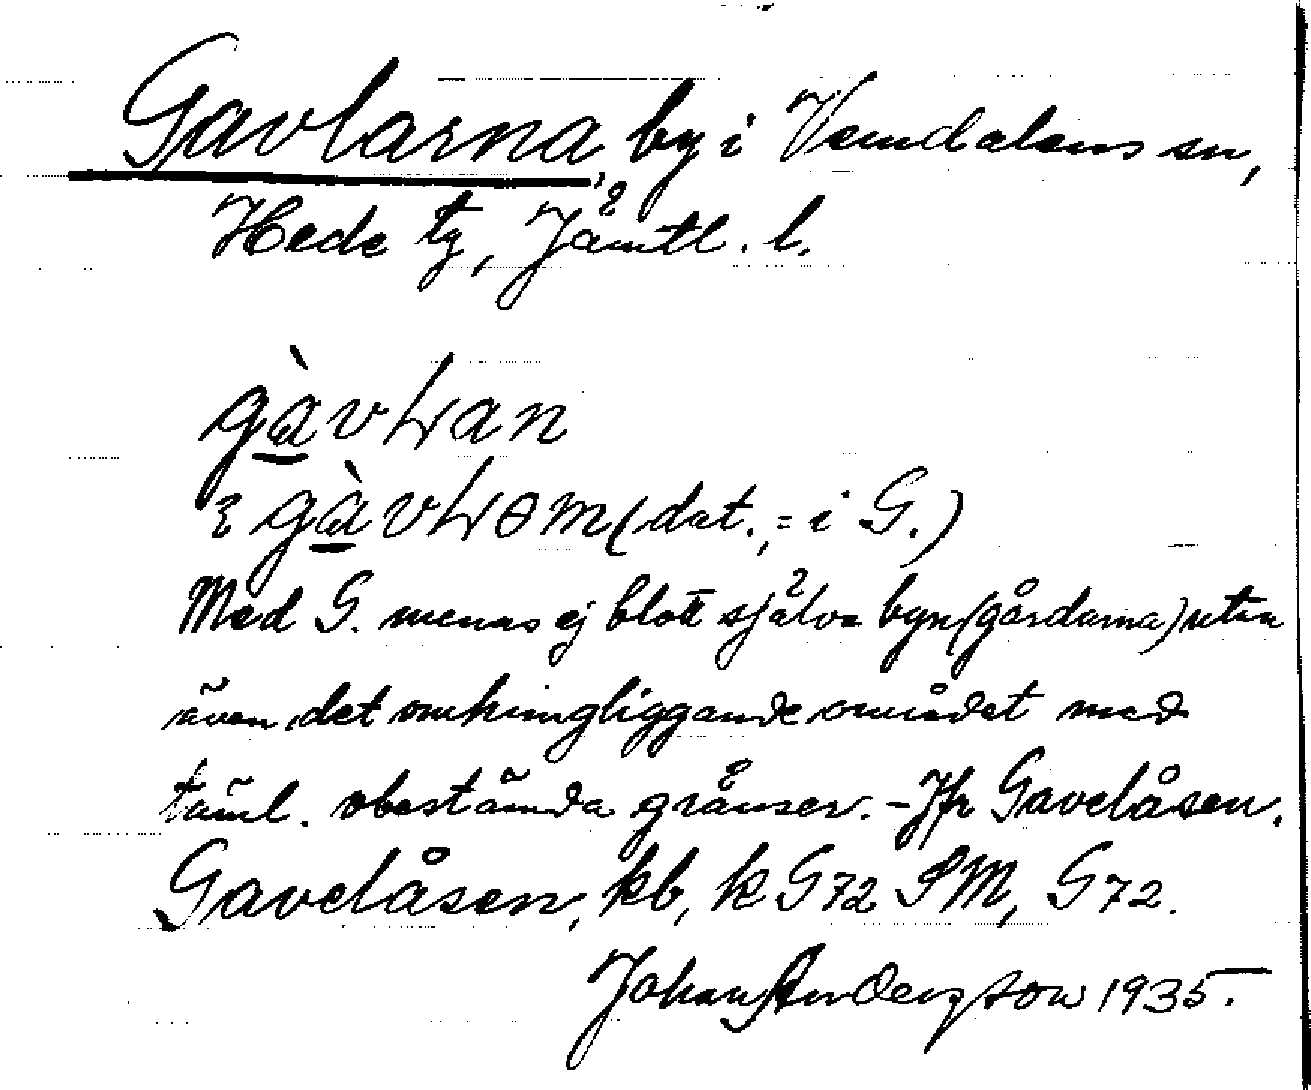 Gavlarna, by i Vemdalens sn,
Hede tg, Jämtl. l.
gàvļan
i gàvļɵm (dat., = i G.)
Med G. menas ej blott själva byn (gårdarna) utan
även det omkringliggande området med
täml. obestämda gränser. – Jfr Gavelåsen.
Gavelåsen, kb, k G72 SM, G72.
Johan Anderzson 1935.